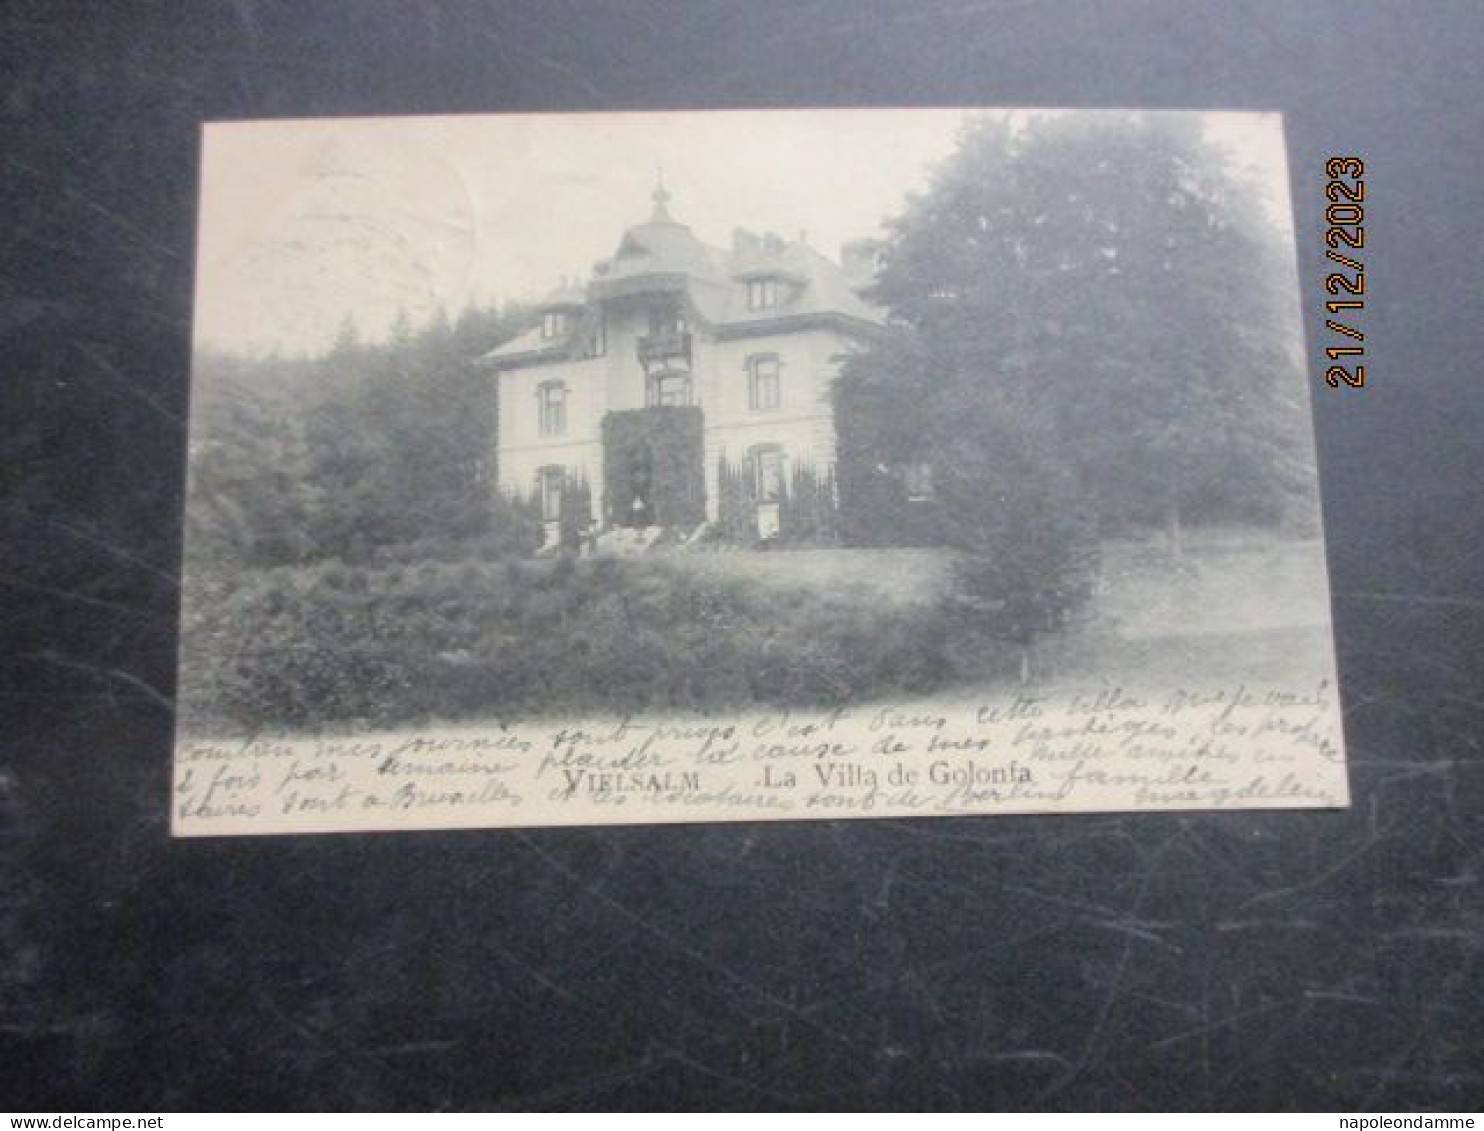 combien mes journées sont prises c'est dans cette villa que je vais
2 fois par semaine plaider la cause de mes protégés, les proprié
taires sont a Bruxelles et les locataires sont de Berlin
Mille amitiés en
famille
Magdeleine
VIELSALM La Villa de Golonfa
21/12/2023
delcampe.net
napoleondamme